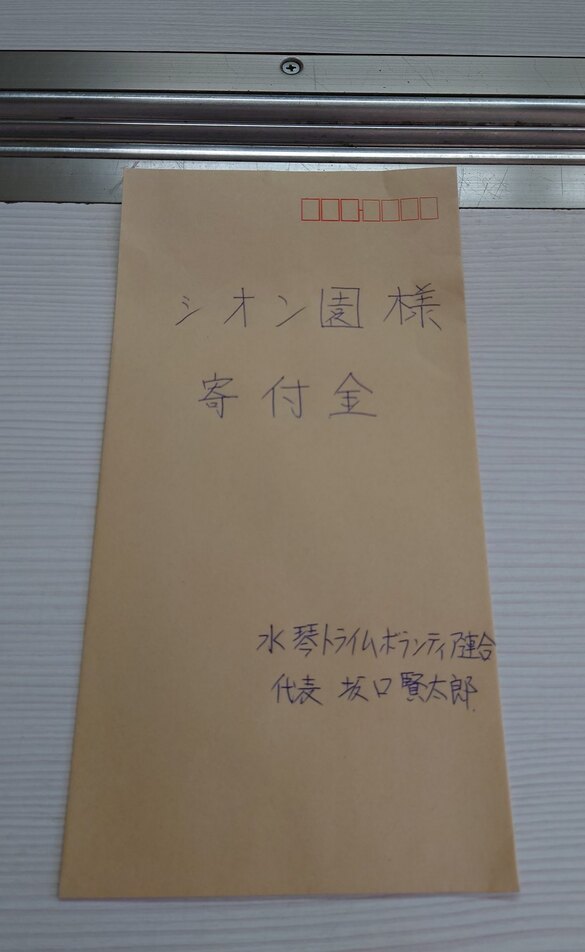 シオン園様
寄付金
水琴トライムボランティア連合
代表 坂口賢太郎